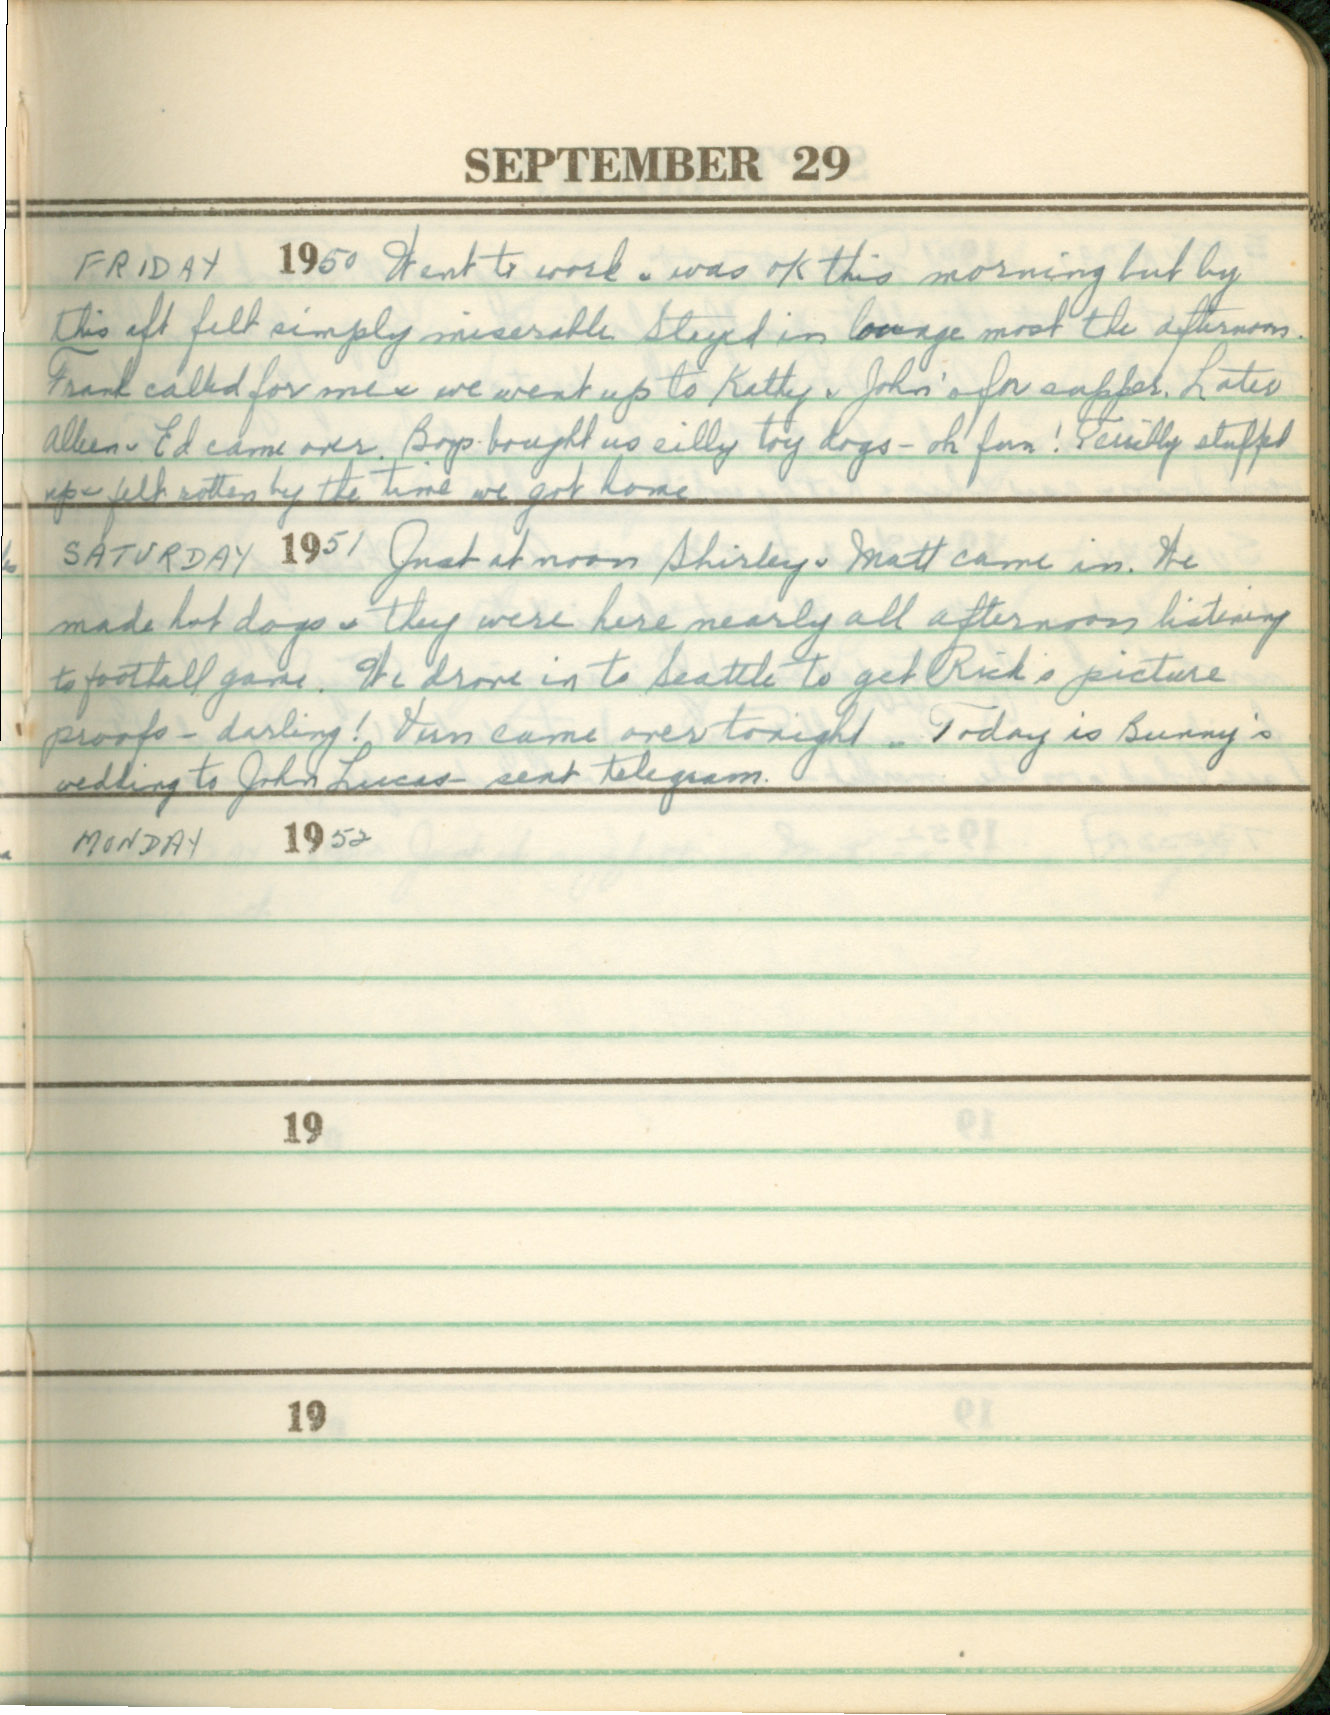 SEPTEMBER 29
FRIDAY 1950 Went to work & was OK this morning but by
this aft felt simply miserable. Stayed in lounge most the afternoon.
Frank called for me & we went up to Kathy & John's for supper. Later
Alleen & Ed came over. Boys bought us silly toy dogs - oh fun! Terribly stuffed
up & felt rotten by the time we got home
SATURDAY 1951 Just at noon Shirley & Matt came in. We
made hot dogs & they were here nearly all afternoon listening
to football game. We drove in to Seattle to get Rick's picture
proofs - darling! came over tonight .. Today is Bunny's
wedding to John Lucas - sent telegram.
MONDAY 1952
19
19